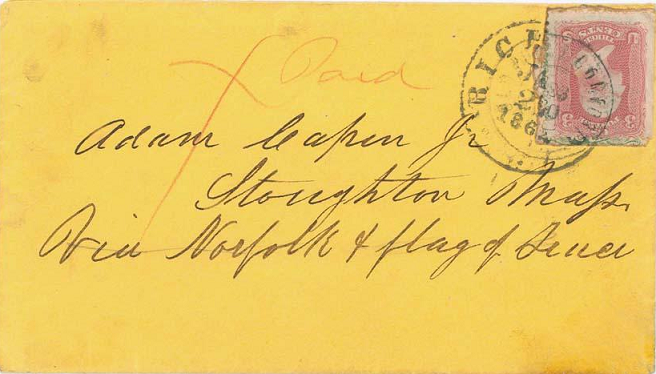 Paid
RICH
JAN
20
1863
U S
THREE CENTS
3 3
Adam Capen Jr
Stoughton Mass.
Via Norfolk & flag of Truce